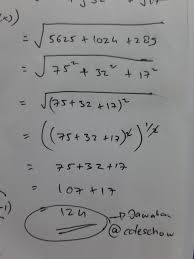 = √5625 + 1024 + 289
= √75² + 32² + 17²
= √(75+32+17)²
= ((75+32+17)²)^1/2
= 75+32+17
= 107 + 17
= 124 → Jawaban
@coteschow